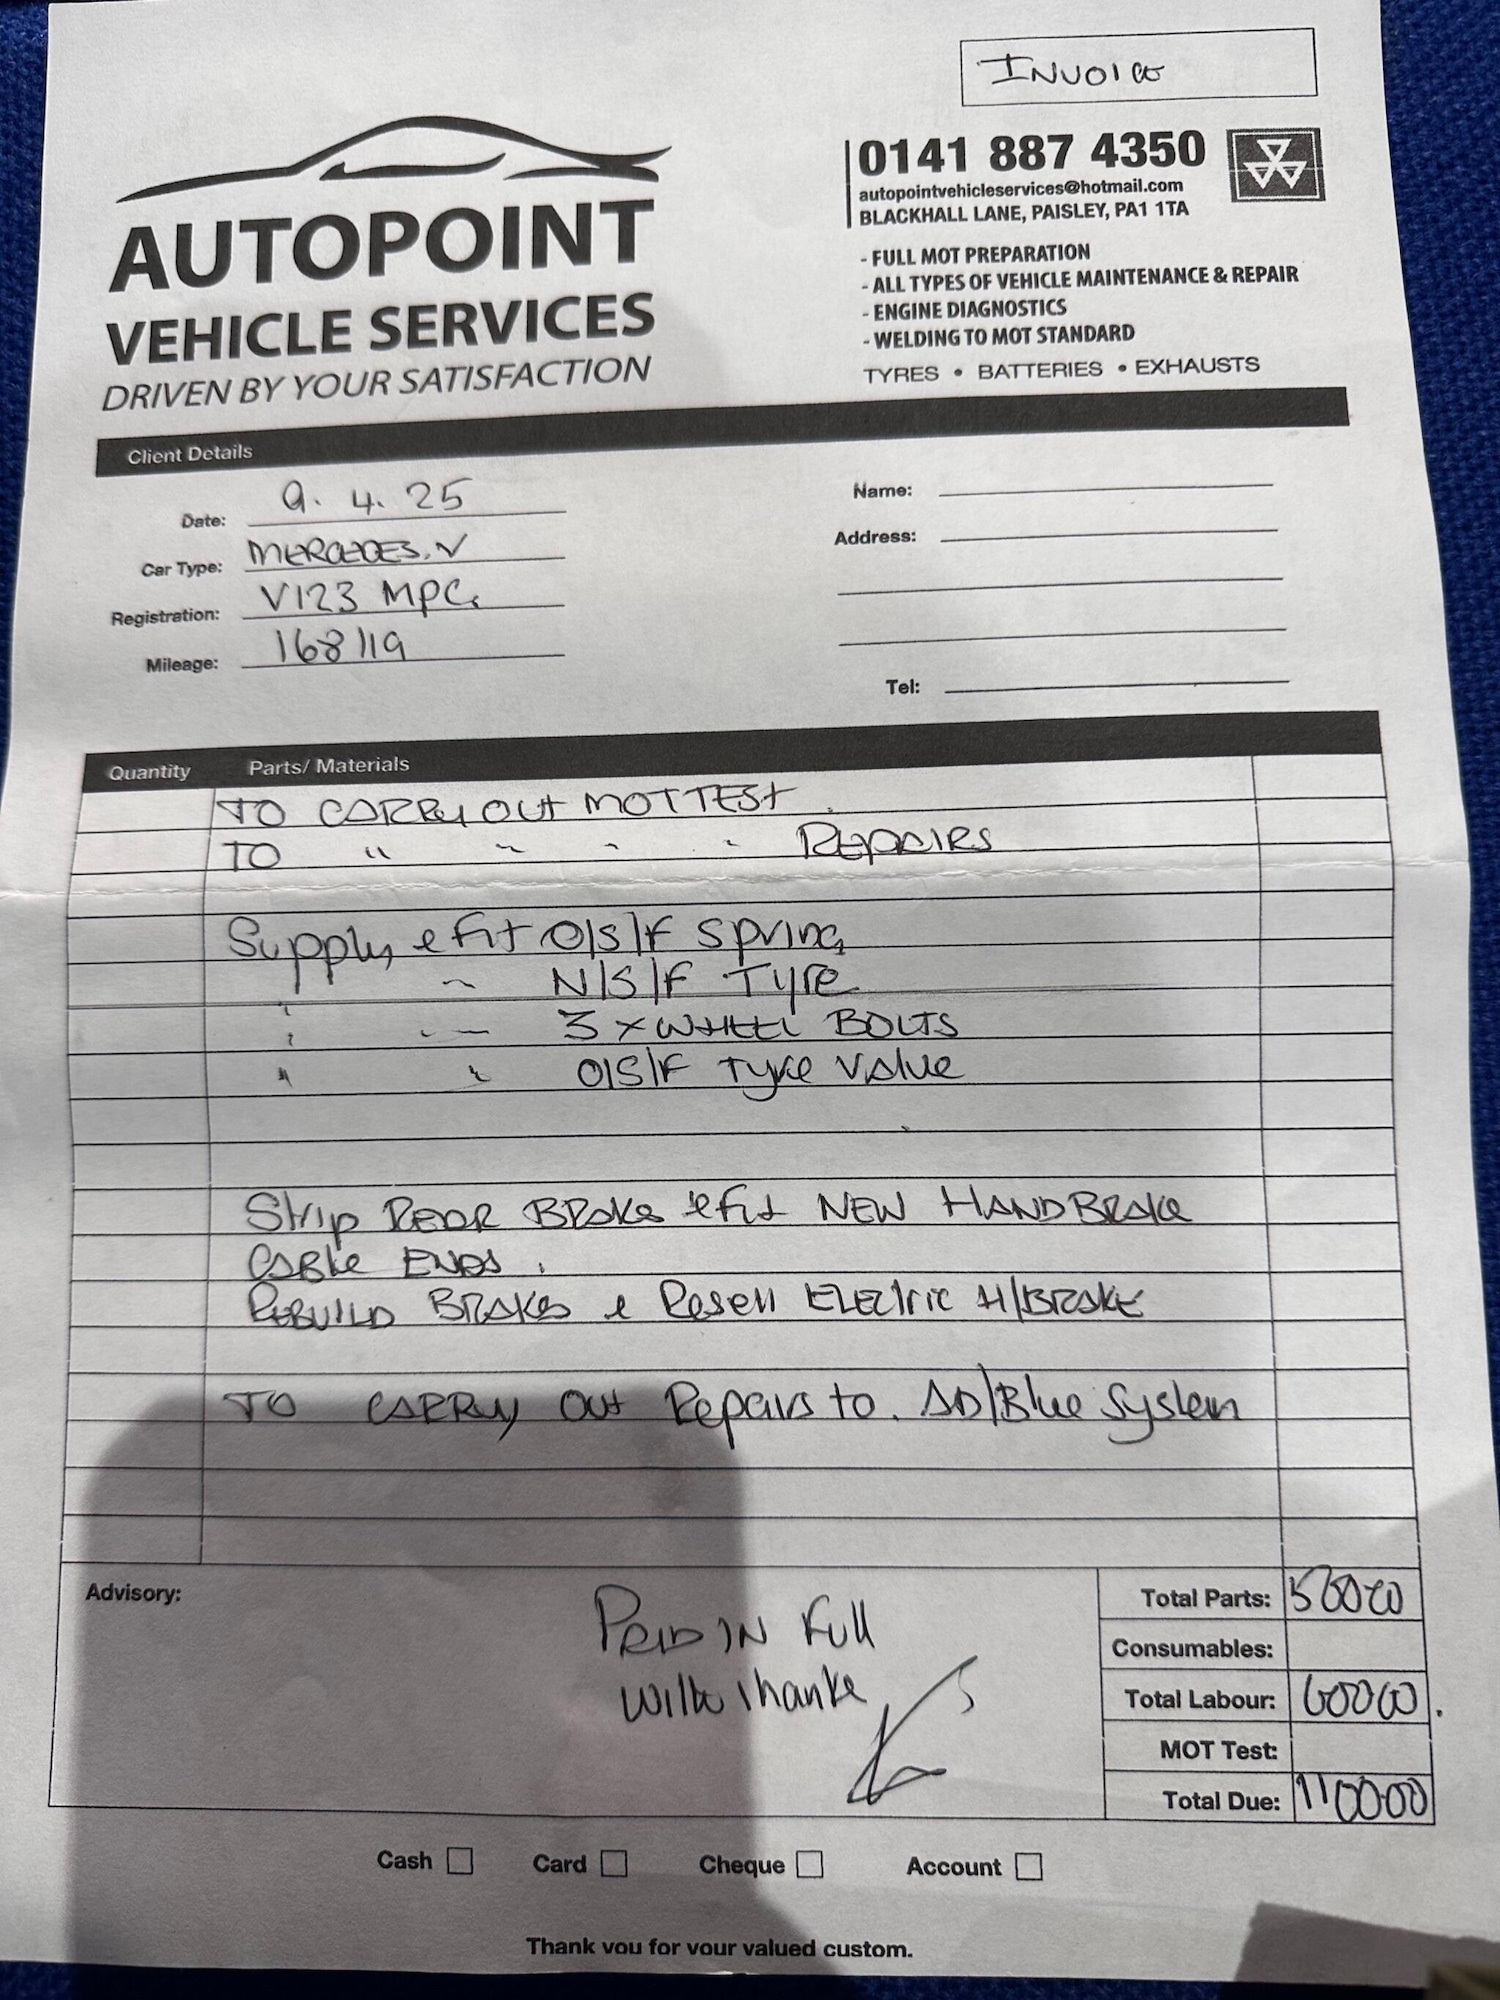 INVOICE
0141 887 4350
autopointvehicleservices@hotmail.com
BLACKHALL LANE, PAISLEY, PA1 1TA
- FULL MOT PREPARATION
- ALL TYPES OF VEHICLE MAINTENANCE & REPAIR
- ENGINE DIAGNOSTICS
- WELDING TO MOT STANDARD
TYRES • BATTERIES • EXHAUSTS
AUTOPOINT
VEHICLE SERVICES
DRIVEN BY YOUR SATISFACTION
Client Details
Date: 9. 4. 25
Car Type: MERCEDES. V
Registration: V123 MPC.
Mileage: 168119
Name:
Address:
Tel:
Quantity Parts/ Materials
TO CARRY OUT MOT TEST.
TO " " " " REPAIRS
Supply & fit O/S/F Spring
" N/S/F Tyre
" " 3 x WHEEL BOLTS
" " O/S/F Tyre Valve
Strip REAR BRAKE & fit NEW HANDBRAKE
CABLE ENDS.
REBUILD BRAKES & Reset ELECTRIC H/BRAKE
TO CARRY OUT Repairs to. AD/Blue System
Advisory:
PAID IN Full
With thanks
Total Parts: 500 00
Consumables:
Total Labour: 600 00.
MOT Test:
Total Due: 1100.00
Cash Card Cheque Account
Thank you for your valued custom.